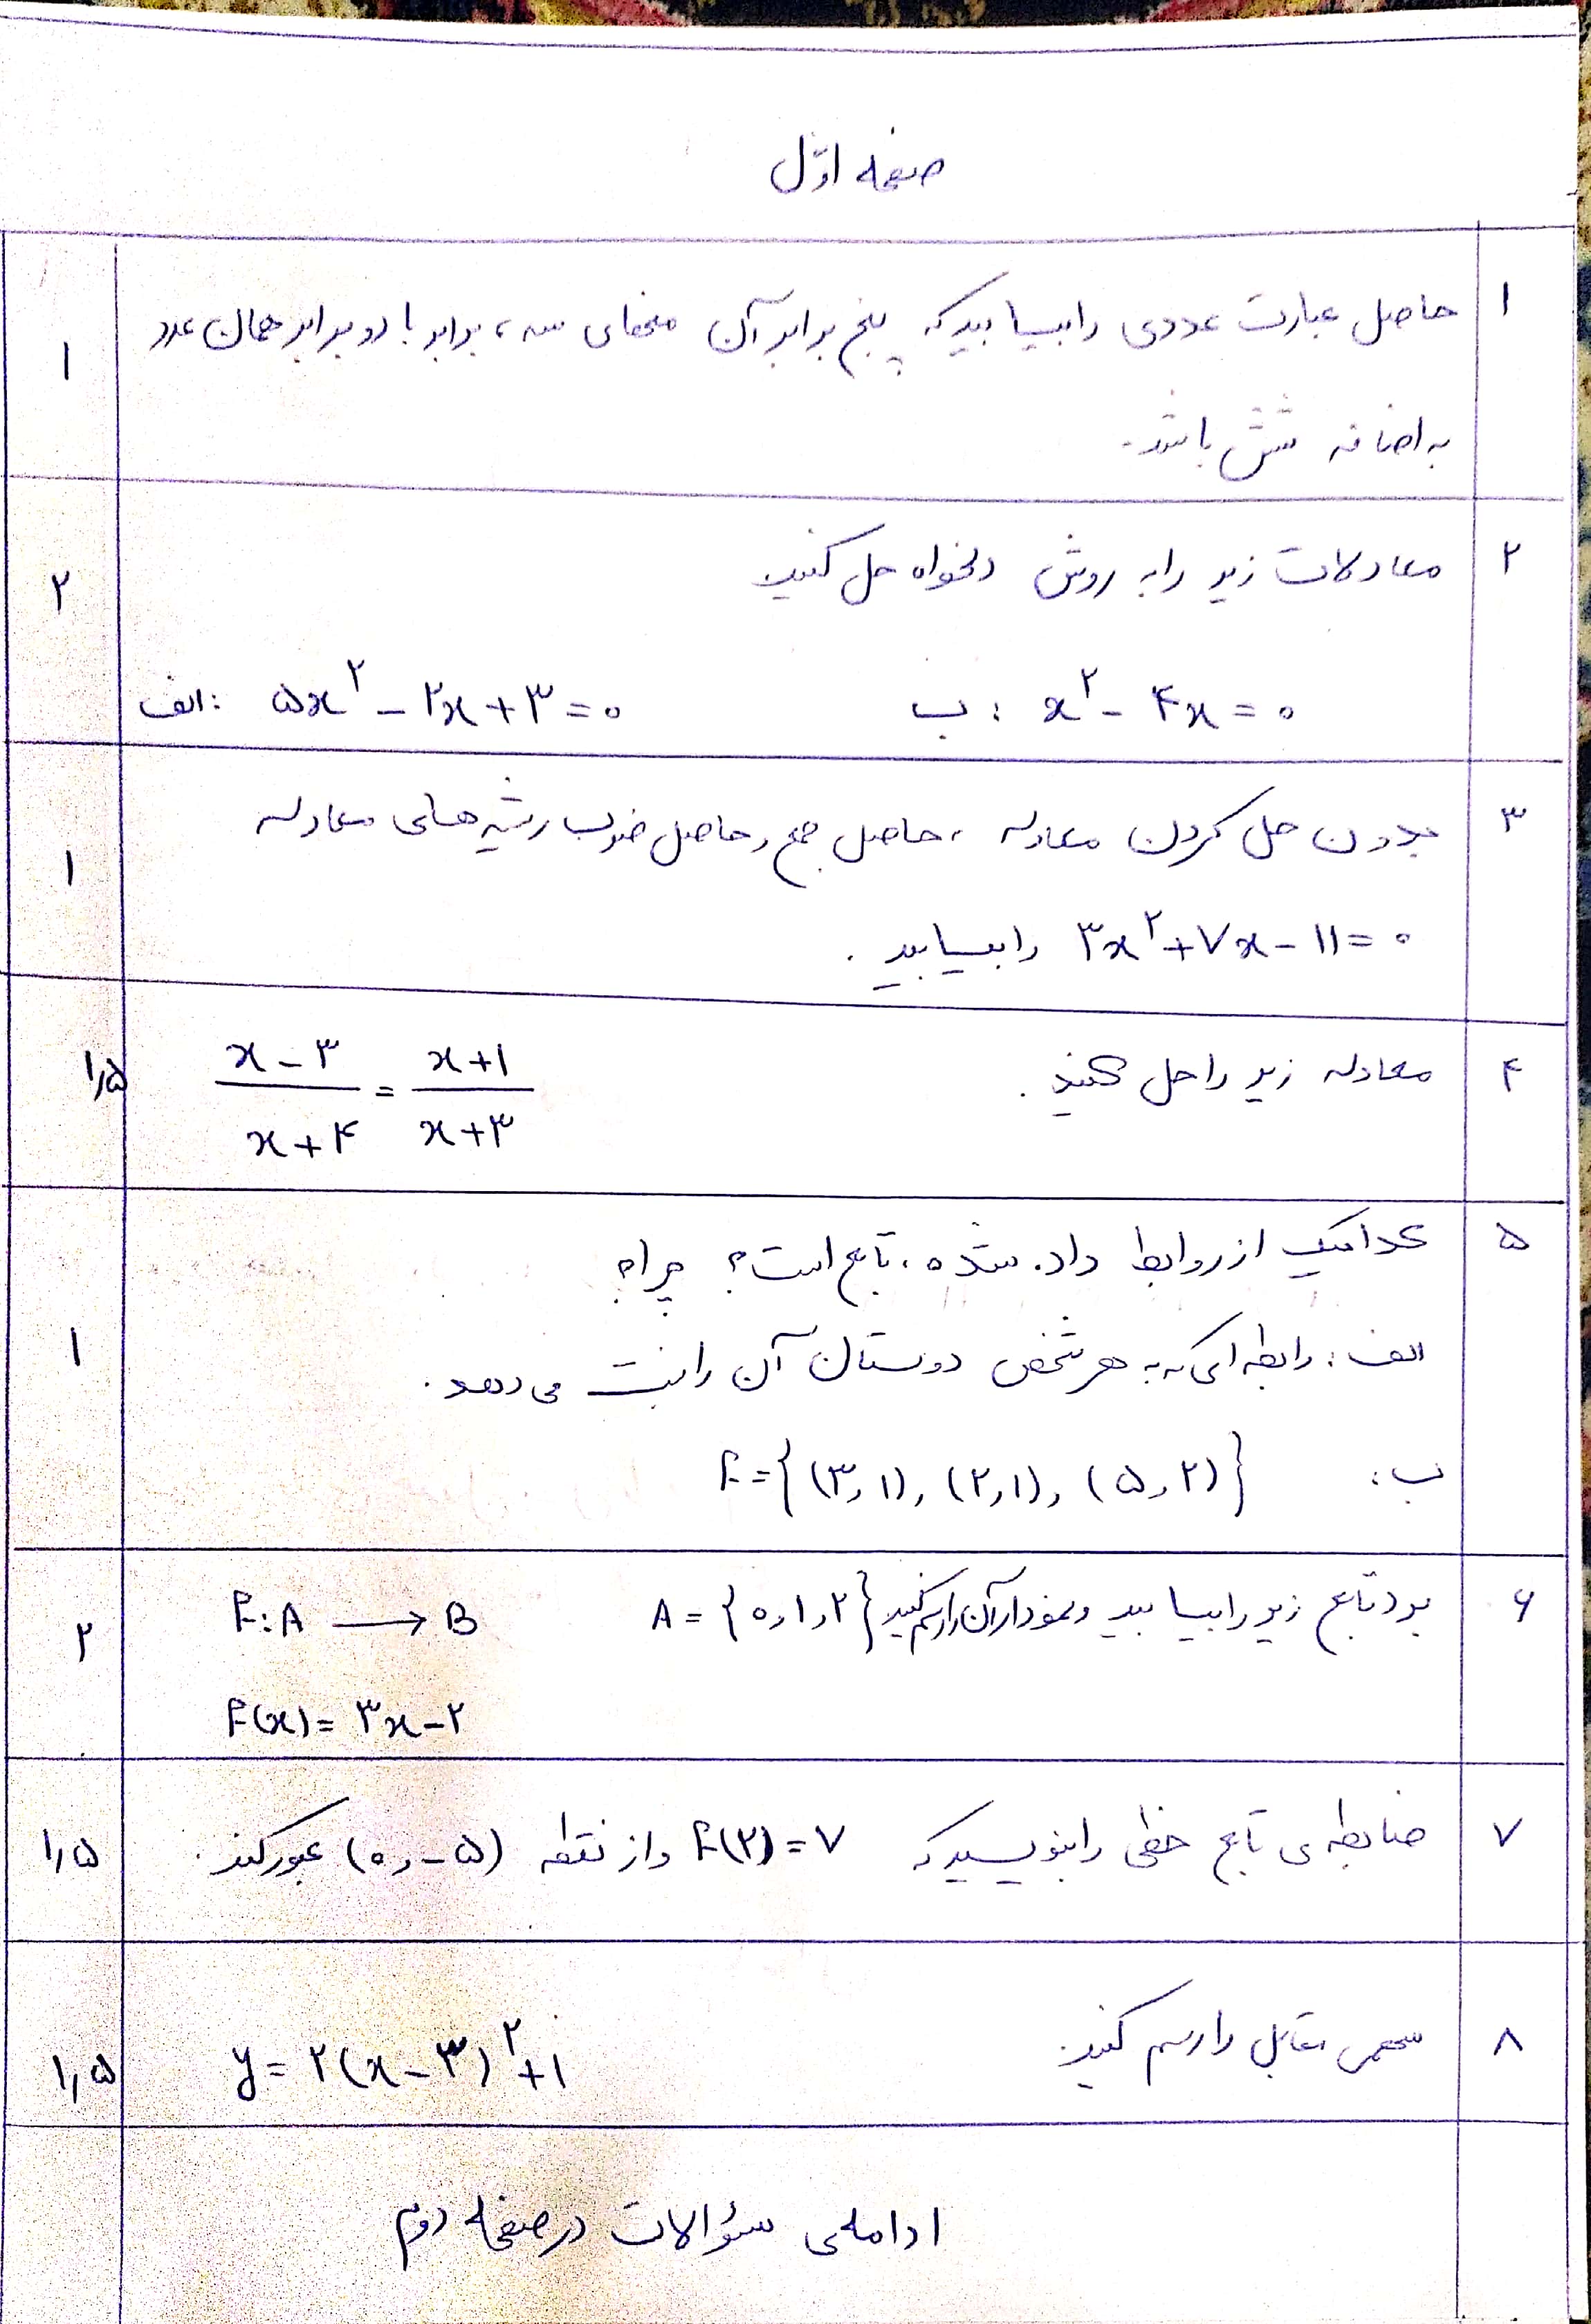 صفحه اوّل
۱ حاصل عبارت عددی را بیابید که پنج برابر آن منهای سه، برابر با دو برابر همان عدد ۱
به اضافه شش باشد.
۲ معادلات زیر را به روش دلخواه حل کنید. ۲
الف: ۵x² - ۲x + ۳ = ۰ ب: x² - ۴x = ۰
۳ بدون حل کردن معادله، حاصل جمع و حاصل ضرب ریشه های معادله ۱
۳x² + ۷x - ۱۱ = ۰ را بیابید.
۴ معادله زیر را حل کنید. (x-۳)/(x+۴) = (x+۱)/(x+۳) ۱٫۵
۵ کدامیک از روابط داده شده، تابع است؟ چرا؟ ۱
الف: رابطه ای که به هر شخص دوستان آن را نسبت می دهد.
ب: F = {(۳,۱), (۲,۱), (۵,۲)}
۶ برد تابع زیر را بیابید و نمودار آن را رسم کنید A = {۰,۱,۲} F: A → B ۲
F(x) = ۳x - ۲
۷ ضابطه ی تابع خطی را بنویسید که F(۲) = ۷ و از نقطه (۰, -۵) عبور کند. ۱٫۵
۸ سهمی مقابل را رسم کنید. y = ۲(x-۳)² + ۱ ۱٫۵
ادامه ی سؤالات در صفحه دوم